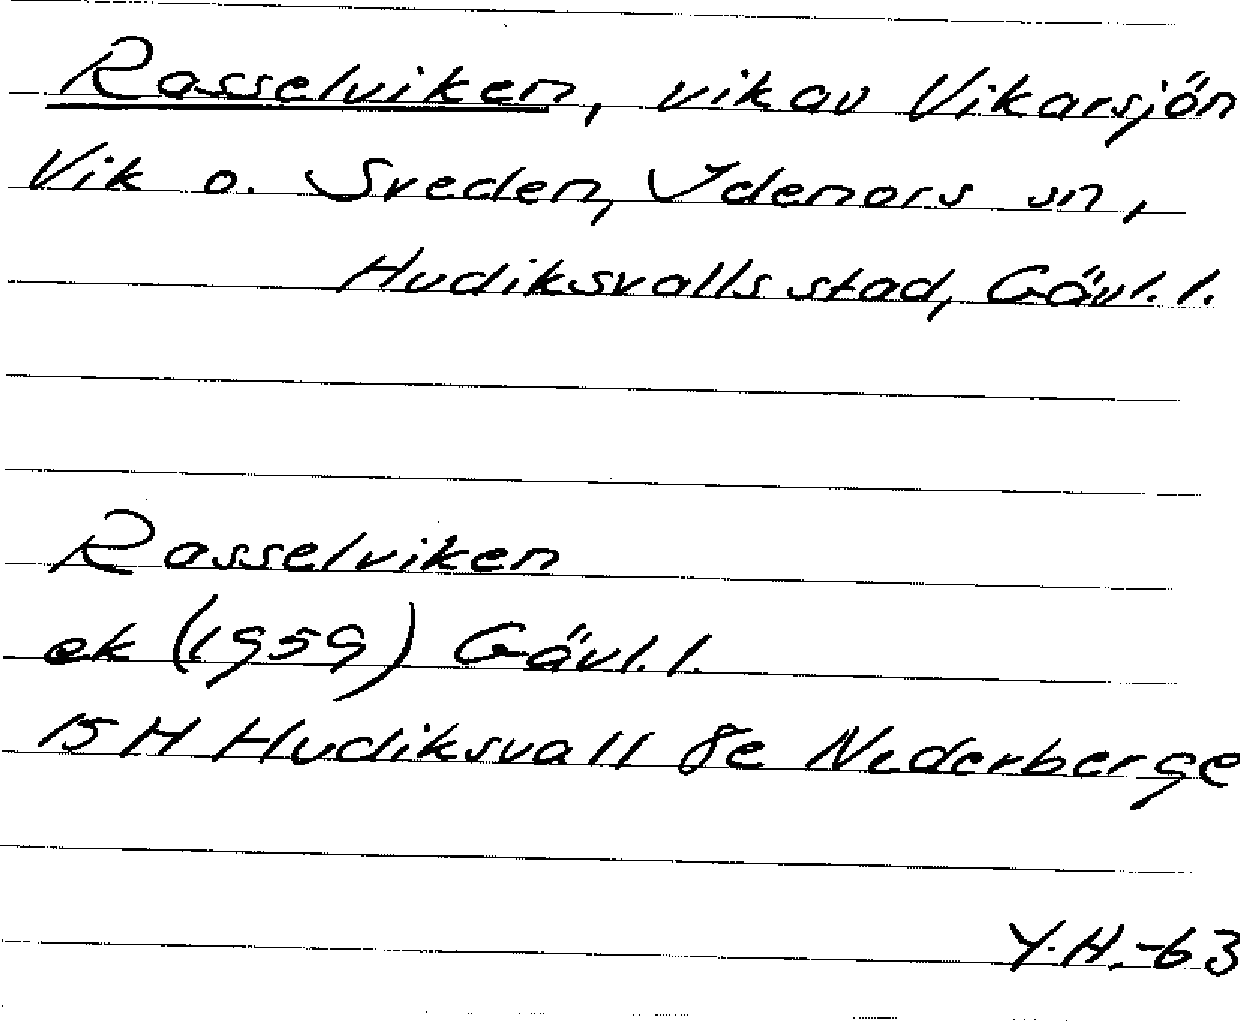 Rasselviken, vik av Vikarsjön
Vik o. Sveden, Idenors sn,
Hudiksvalls stad, Gävl. l.
Rasselviken
ek (1959) Gävl. l.
15H Hudiksvall 8e Nederberge
Y.H.-63